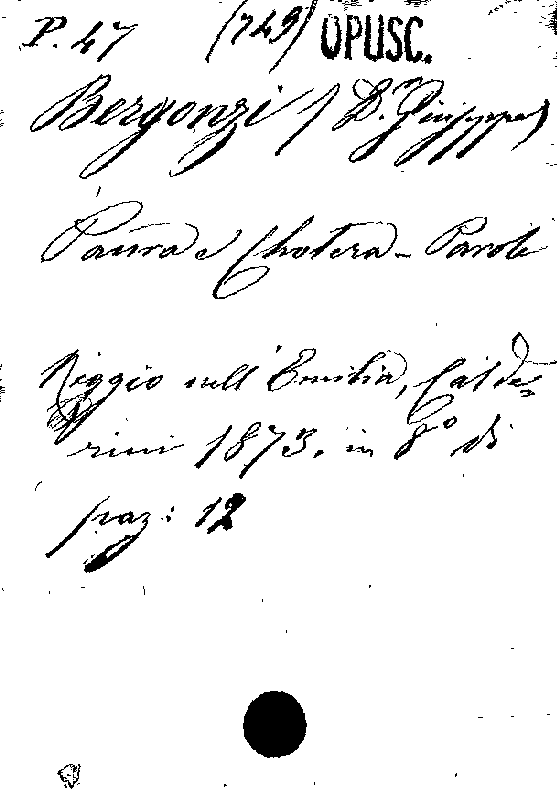 P. 47 (749) OPUSC.
Bergonzi (Dr. Giuseppe)
Paura e Cholera - Parole
Reggio nell'Emilia, Calde-
rini 1873. in 8° di
pag: 12